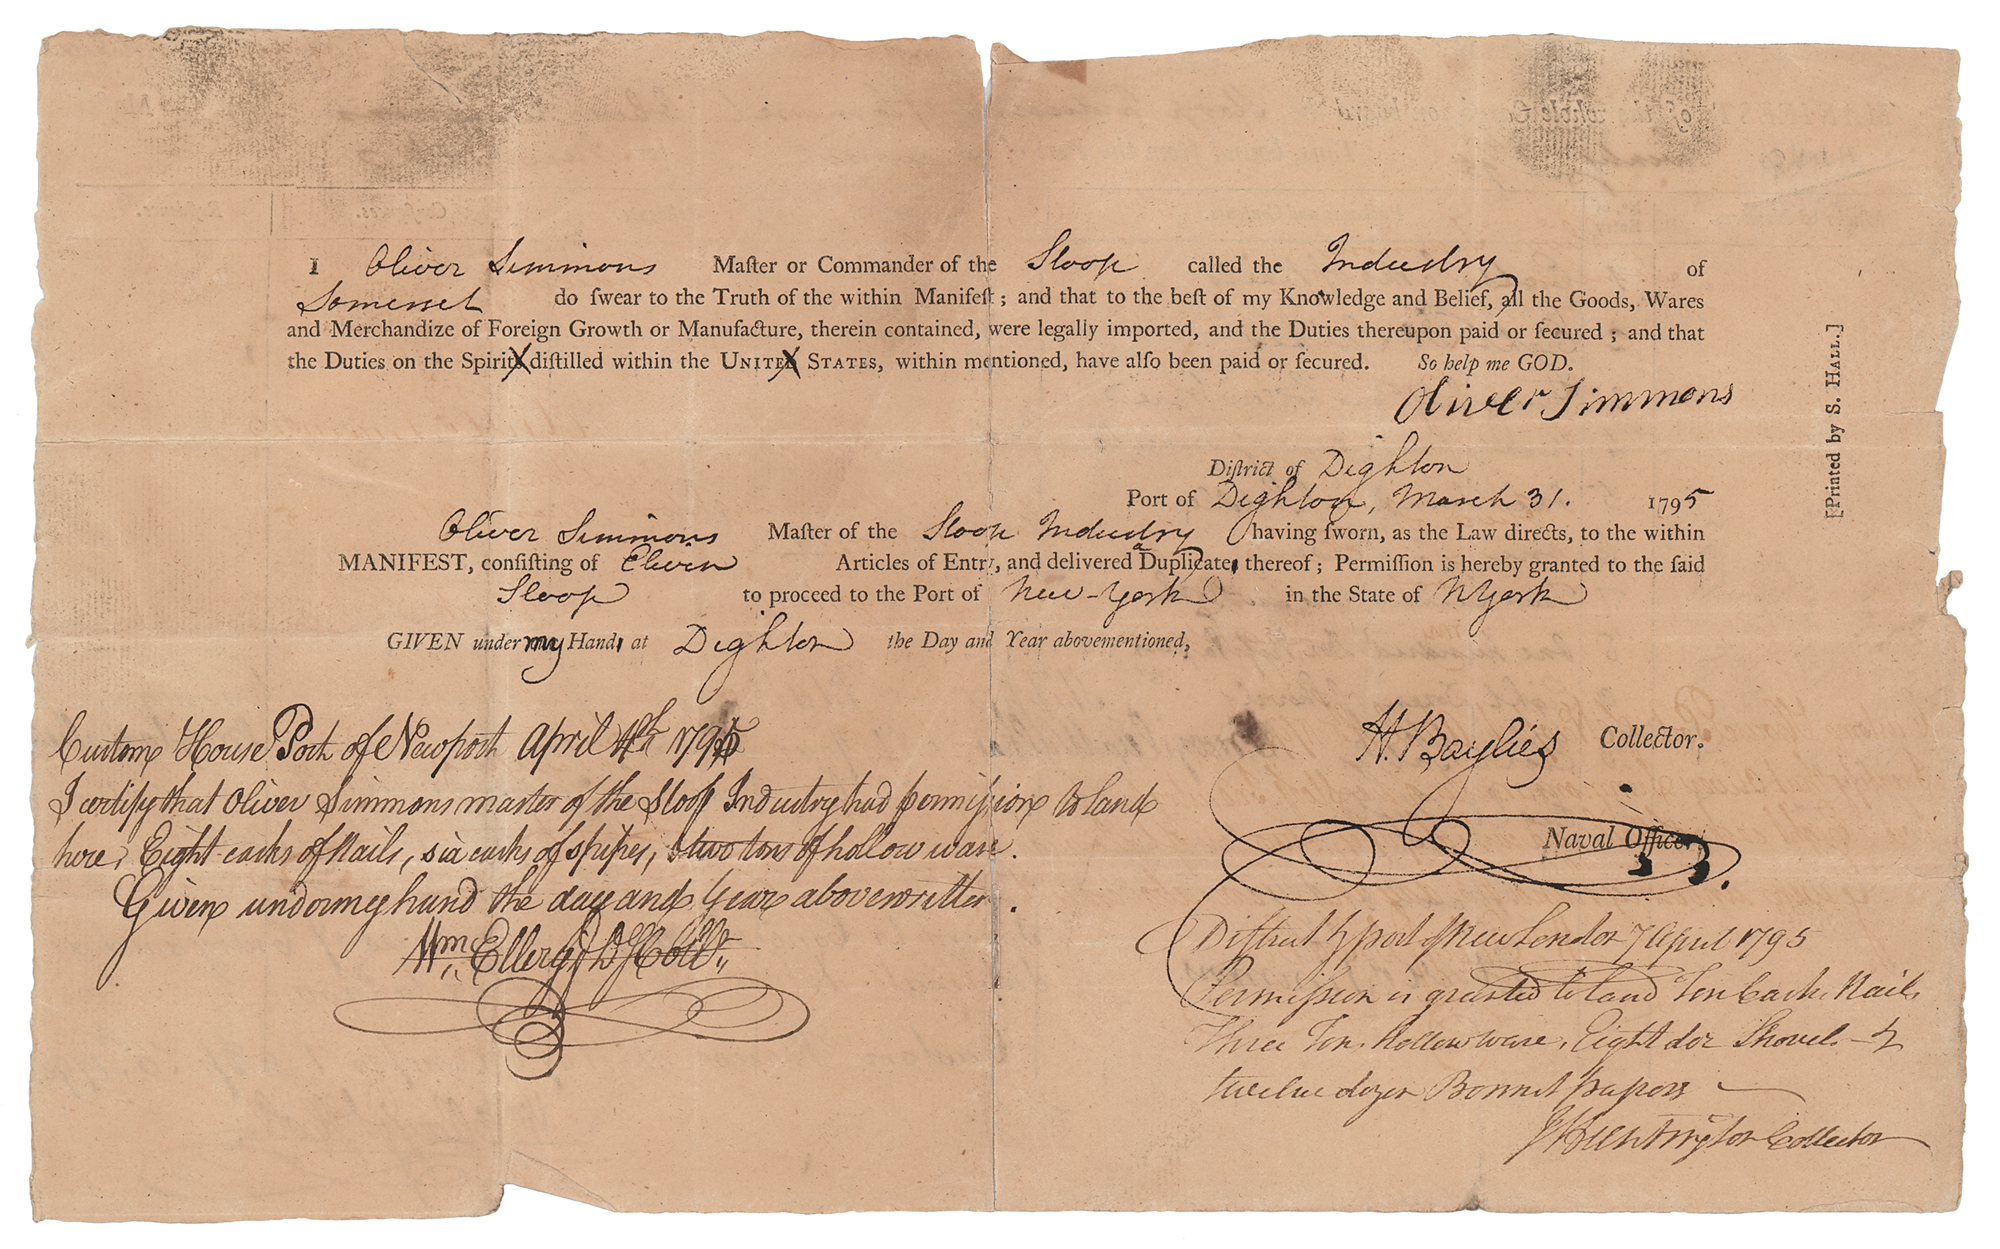 I Oliver Simmons Maſter or Commander of the Sloop called the Industry of
Somerset do ſwear to the Truth of the within Manifeſt; and that to the beſt of my Knowledge and Belief, all the Goods, Wares
and Merchandize of Foreign Growth or Manufacture, therein contained, were legally imported, and the Duties thereupon paid or ſecured; and that
the Duties on the Spirits diſtilled within the UNITED STATES, within mentioned, have alſo been paid or ſecured. So help me GOD.
Oliver Simmons
[Printed by S. HALL.]
Diſtrict of Dighton
Port of Dighton, March 31. 1795
Oliver Simmons Maſter of the Sloop Industry having ſworn, as the Law directs, to the within
MANIFEST, conſiſting of Eleven Articles of Entry, and delivered a Duplicate thereof; Permiſſion is hereby granted to the ſaid
Sloop to proceed to the Port of New-York in the State of NYork
GIVEN under my Hand at Dighton the Day and Year abovementioned,
H. Baylies Collector.
Naval Officer
Custom House Port of Newport April 4th 1795
I certify that Oliver Simmons master of the Sloop Industry had permission to land
here, Eight casks of Nails, six casks of spikes, two tons of hollow ware.
Given under my hand the day and Year above written.
Wm. Ellery Collr.
Diſtrict & port of New London 7 April 1795
Permiſsion is granted to land Ten Casks Nails
Three Ton Hollow ware, Eight doz Shovels &
twelve dozen Bonnet papers
J Huntington Collector